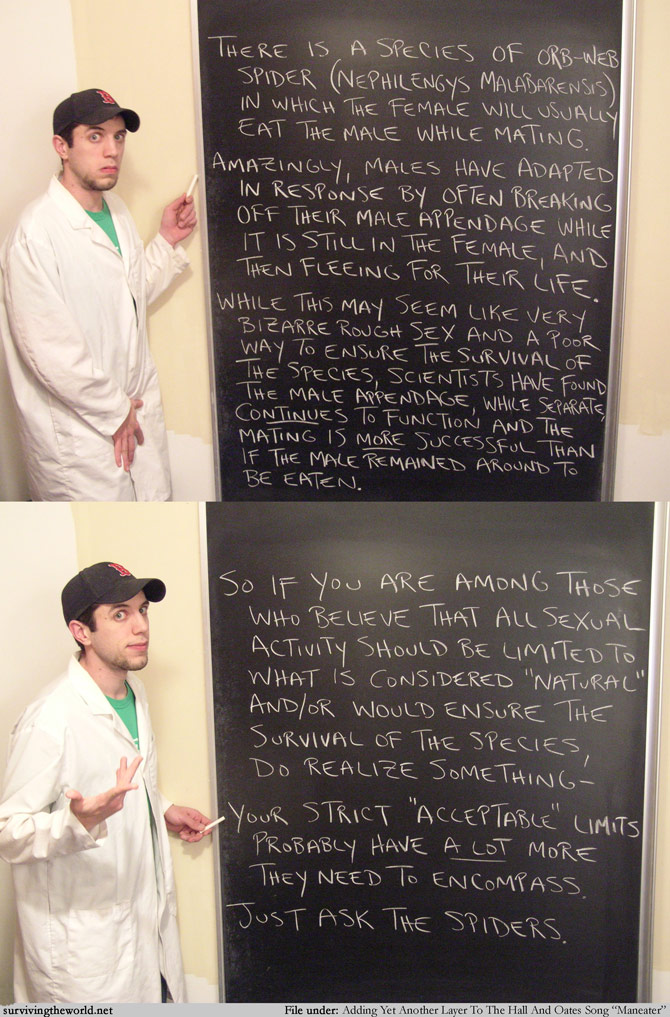 THERE IS A SPECIES OF ORB-WEB
SPIDER (NEPHILENGYS MALABARENSIS)
IN WHICH THE FEMALE WILL USUALLY
EAT THE MALE WHILE MATING.
AMAZINGLY, MALES HAVE ADAPTED
IN RESPONSE BY OFTEN BREAKING
OFF THEIR MALE APPENDAGE WHILE
IT IS STILL IN THE FEMALE, AND
THEN FLEEING FOR THEIR LIFE.
WHILE THIS MAY SEEM LIKE VERY
BIZARRE ROUGH SEX AND A POOR
WAY TO ENSURE THE SURVIVAL OF
THE SPECIES, SCIENTISTS HAVE FOUND
THE MALE APPENDAGE, WHILE SEPARATE,
CONTINUES TO FUNCTION AND THE
MATING IS MORE SUCCESSFUL THAN
IF THE MALE REMAINED AROUND TO
BE EATEN.
SO IF YOU ARE AMONG THOSE
WHO BELIEVE THAT ALL SEXUAL
ACTIVITY SHOULD BE LIMITED TO
WHAT IS CONSIDERED "NATURAL"
AND/OR WOULD ENSURE THE
SURVIVAL OF THE SPECIES,
DO REALIZE SOMETHING-
YOUR STRICT "ACCEPTABLE" LIMITS
PROBABLY HAVE A LOT MORE
THEY NEED TO ENCOMPASS.
JUST ASK THE SPIDERS.
survivingtheworld.net
File under: Adding Yet Another Layer To The Hall And Oates Song "Maneater"